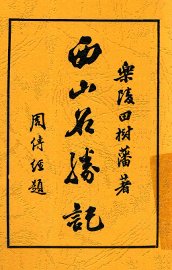 樂陵田樹藩著
西山名勝記
周傳經題